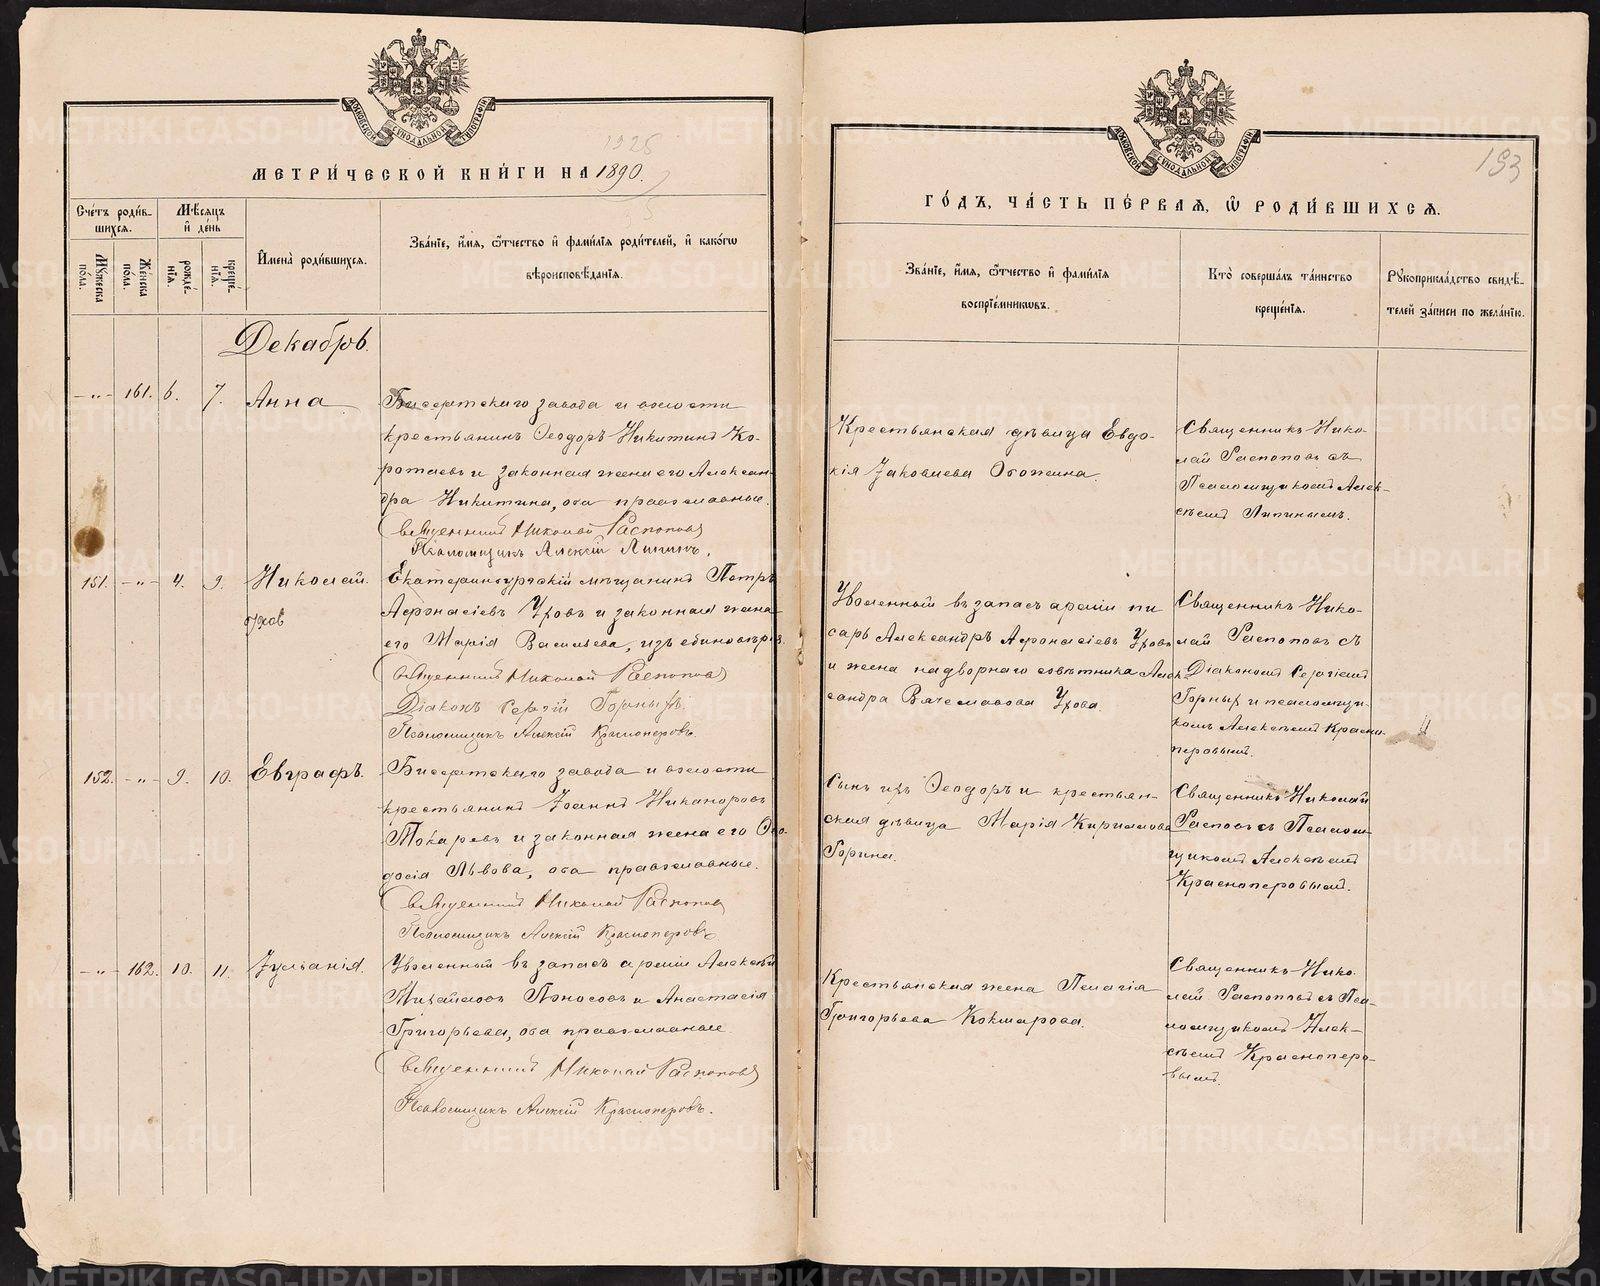 МЕТРИ́ЧЕСКОЙ КНИ́ГИ НА 1890.
Сче́тъ роди́в-
шихся.
Мѣ́сяцъ
и҆ де́нь
Мꙋ́жеска
по́ла.
Же́нска
по́ла.
рожде́-
нїѧ.
креще́-
нїѧ.
И҆мена̀ роди́вшихсѧ.
Зва́нїе, и҆́мѧ, ѻ҆́тчество и҆ фами́лїѧ роди́телей, и҆ како́гѡ
вѣроисповѣ́данїѧ.
Декабрь.
-"- 161. 6. 7. Анна
Бисертскаго завода и волости
крестьянинъ Ѳеодоръ Никитинъ Ко-
ротаевъ и законная жена его Алексан-
дра Никитина, оба православные.
Священникъ Николай Распоповъ
Псаломщикъ Алексій Липинъ.
151. -"- 4. 9. Николай.
Уховъ
Екатеринбургскій мѣщанинъ Петръ
Афонасіевъ Уховъ и законная жена
его Марія Васильева, изъ единовѣрія.
Священникъ Николай Распоповъ
Діаконъ Сергій Горныхъ.
Псаломщикъ Алексій Красноперовъ.
152. -"- 9. 10. Евграфъ.
Бисертскаго завода и волости
крестьянинъ Іоаннъ Никаноровъ
Токаревъ и законная жена его Ѳео-
досія Львова, оба православные.
Священникъ Николай Распоповъ
Псаломщикъ Алексій Красноперовъ
-"- 162. 10. 11. Іуліанія.
Уволенный въ запасъ арміи Алексѣй
Михайловъ Поносовъ и Анастасія
Григорьева, оба православные
Священникъ Николай Распоповъ
Псаломщикъ Алексій Красноперовъ.
193
ГО́ДЪ, ЧА́СТЬ ПЕ́РВАѦ, Ѡ҆ РОДИ́ВШИХСѦ.
Зва́нїе, и҆́мѧ, ѻ҆́тчество и҆ фами́лїѧ
воспрїе́мникѡвъ.
Кто̀ соверша́лъ та́инство
креще́нїѧ.
Рꙋкоприкла́дство свидѣ́-
телей за́писи по жела́нїю.
Крестьянская дѣвица Евдо-
кія Іаковлева Отожина.
Священникъ Нико-
лай Распоповъ съ
Псаломщикомъ Алек-
сѣемъ Липинымъ.
Уволенный въ запасъ арміи пи
сарь Александръ Афонасіевъ Уховъ
и жена надворнаго совѣтника Алек
сандра Вячеславова Ухова.
Священникъ Нико-
лай Распоповъ съ
Діакономъ Сергіемъ
Горныхъ и псаломщи-
комъ Алексѣемъ Красно-
перовымъ.
Сынъ ихъ Ѳеодоръ и крестьян-
ская дѣвица Марія Кирилова
Горина.
Священникъ Николай
Распоповъ съ Псалом-
щикомъ Алексѣемъ
Красноперовымъ.
Крестьянская жена Пелагія
Григорьева Кокшарова.
Священникъ Нико-
лай Распоповъ съ Пса-
ломщикомъ Алек-
сѣемъ Краснопе­ро-
вымъ.